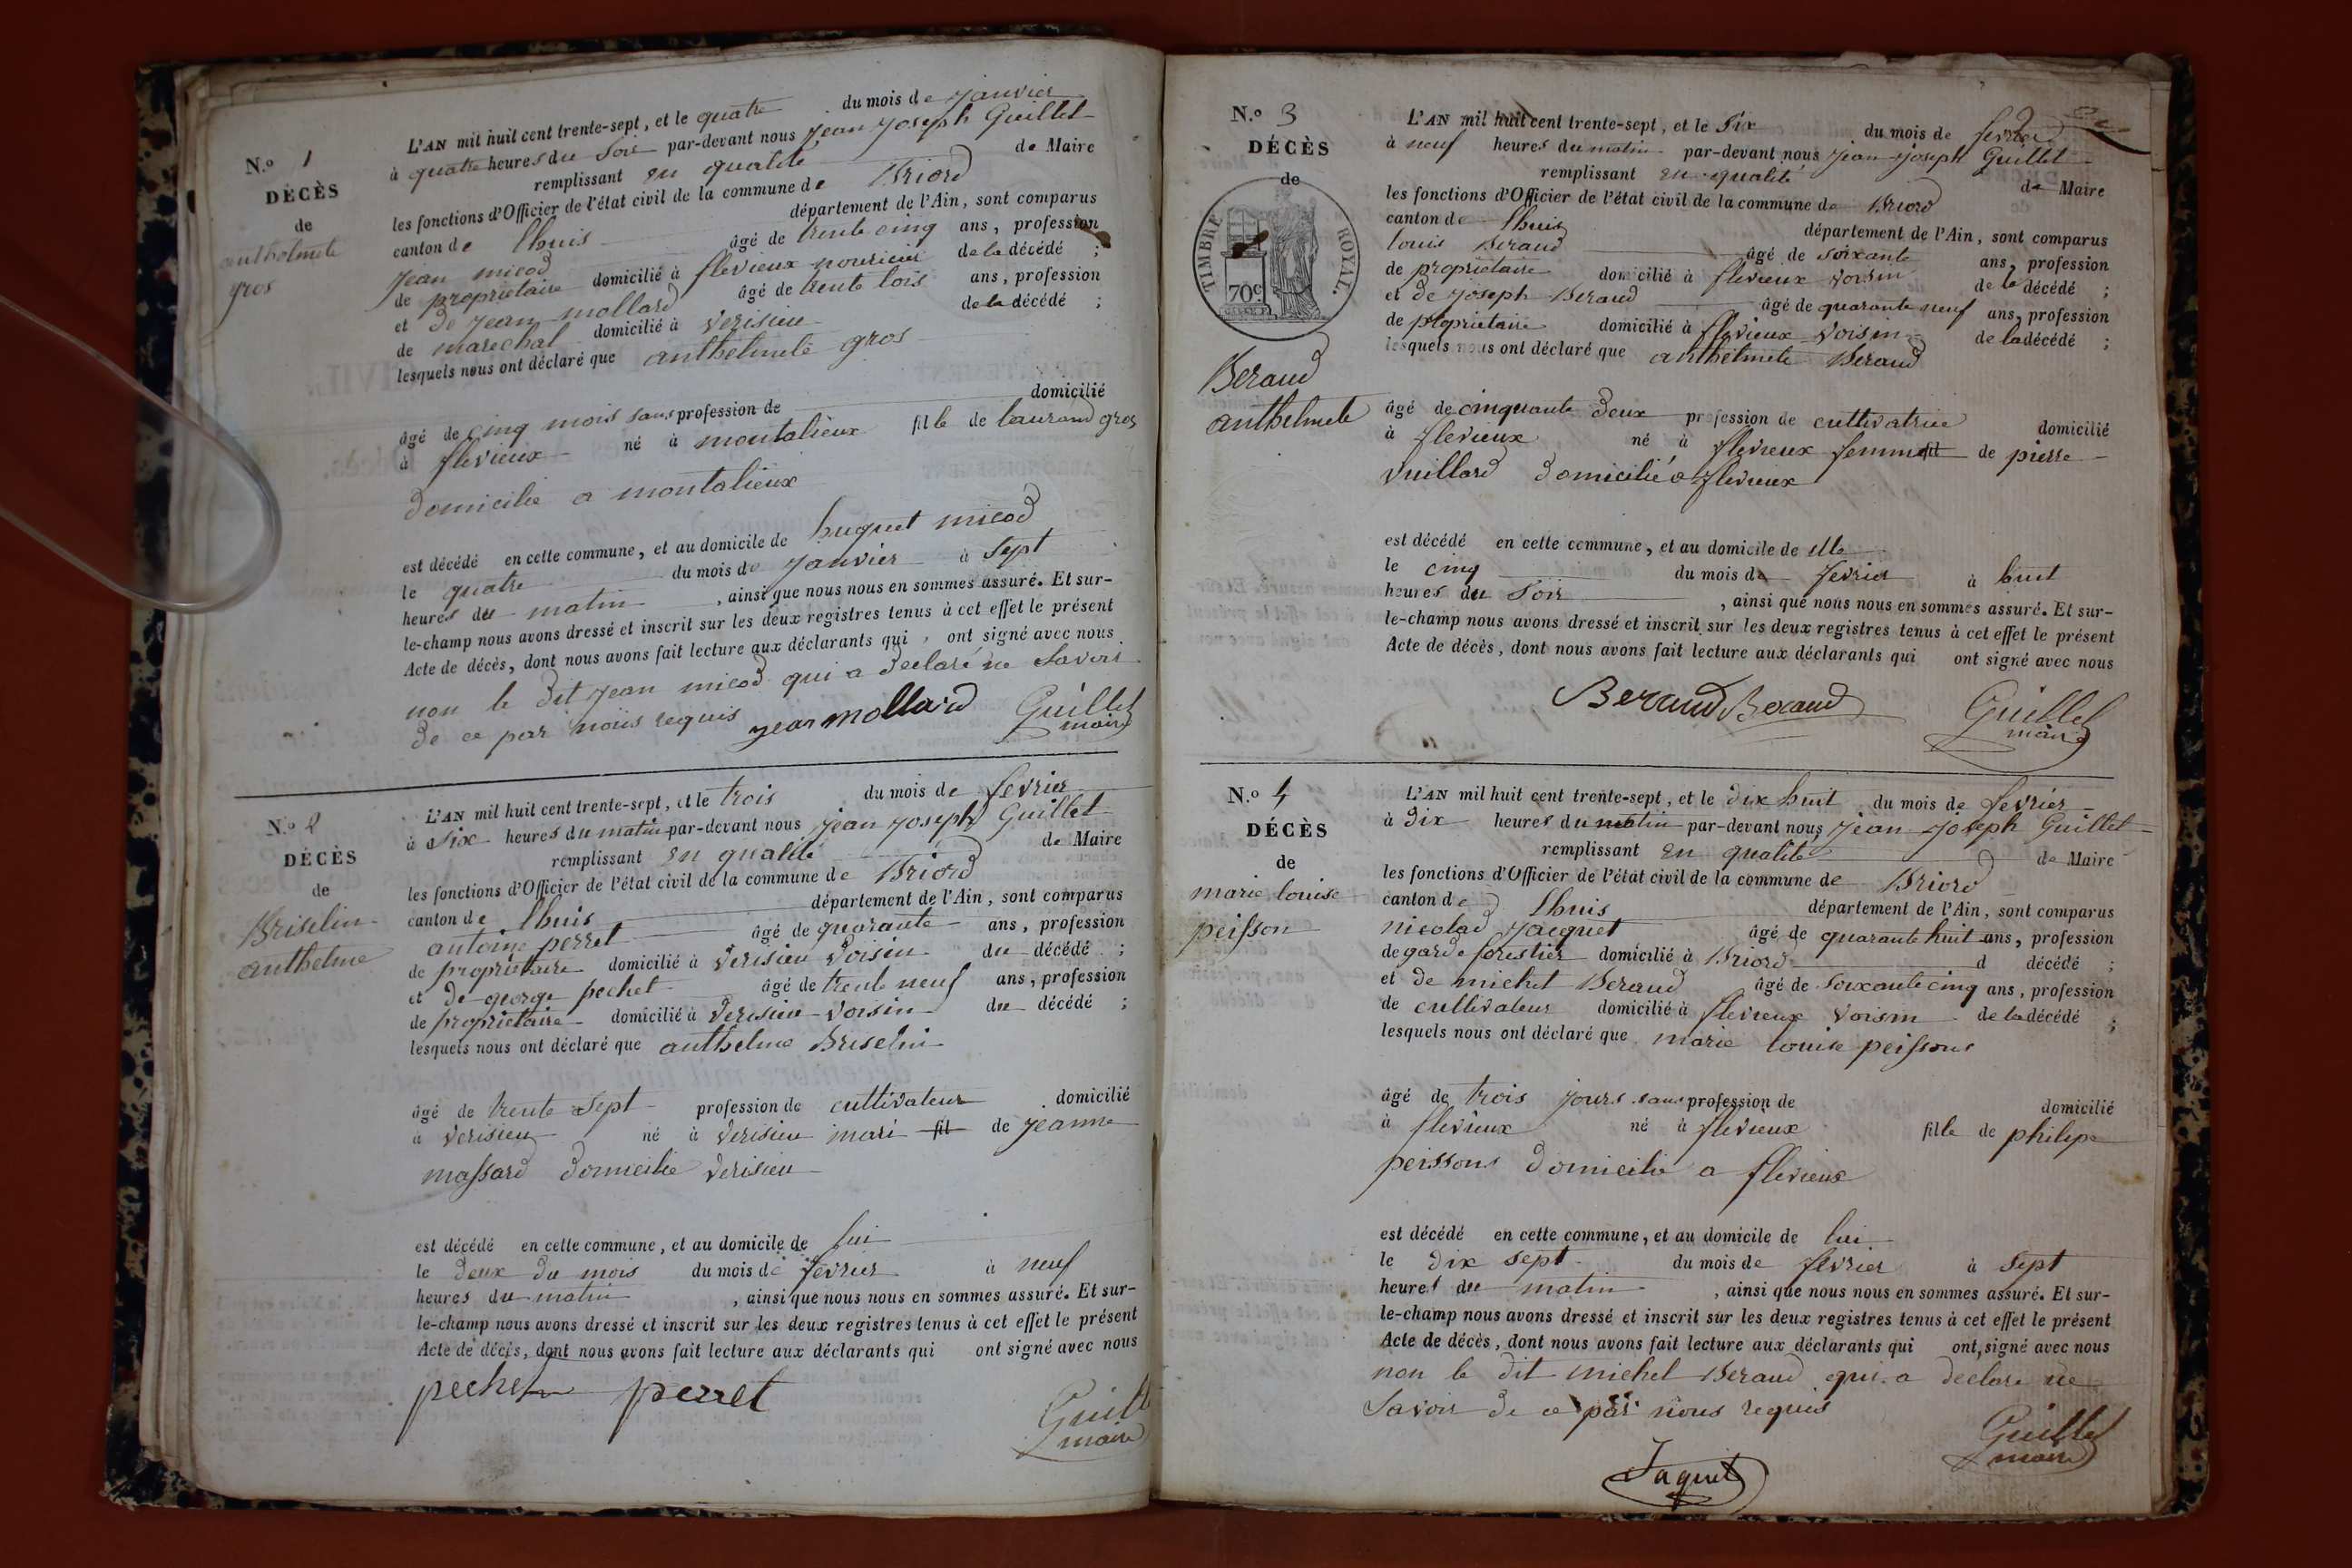 N.o 1
DÉCÈS
de
anthelmete
gros
L'AN mil huit cent trente-sept, et le quatre du mois de janvier
à quatre heures du soir par-devant nous jean joseph Guillet
remplissant en qualité de Maire
les fonctions d'Officier de l'état civil de la commune de Briord
canton de lhuis département de l'Ain, sont comparus
jean micod âgé de trente cinq ans, profession
de propriétaire domicilié à flevieux nouricier de la décédé ;
et de jean mollard âgé de trente tois ans, profession
de marechal domicilié à verisieu de la décédé ;
lesquels nous ont déclaré que anthelmete gros
âgé de cinq mois sans profession de domicilié
à flevieux né à montalieux fille de laurand gros
domicilié a montalieux
est décédé en cette commune, et au domicile de huguet micod
le quatre du mois de janvier à sept
heures du matin , ainsi que nous nous en sommes assuré. Et sur-
le-champ nous avons dressé et inscrit sur les deux registres tenus à cet effet le présent
Acte de décès, dont nous avons fait lecture aux déclarants qui , ont signé avec nous
non le dit jean micod qui a declaré ne savoir
de ce par nous requis
jean mollard Guillet
maire
N.o 2
DÉCÈS
de
Briselin
anthelme
L'AN mil huit cent trente-sept, et le trois du mois de fevrier
à six heures du matin par-devant nous jean joseph Guillet
remplissant en qualité de Maire
les fonctions d'Officier de l'état civil de la commune de Briord
canton de lhuis département de l'Ain, sont comparus
antoine perret âgé de quarante ans, profession
de propriétaire domicilié à verisieu voisin du décédé ;
et de george pechet âgé de trente neuf ans, profession
de propriétaire domicilié à verisieu voisin du décédé ;
lesquels nous ont déclaré que anthelme Briselin
âgé de trente sept profession de cultivateur domicilié
à verisieu né à verisieu mari fil de jeanne
massard domicilié verisieu
est décédé en cette commune, et au domicile de lui
le deux du mois du mois de fevrier à neuf
heures du matin , ainsi que nous nous en sommes assuré. Et sur-
le-champ nous avons dressé et inscrit sur les deux registres tenus à cet effet le présent
Acte de décès, dont nous avons fait lecture aux déclarants qui ont signé avec nous
pechet perret
Guillet
maire
N.o 3
DÉCÈS
de
TIMBRE ROYAL.
70c
Beraud
anthelmete
L'AN mil huit cent trente-sept, et le six du mois de fevrier
à neuf heures du matin par-devant nous jean joseph Guillet
remplissant en qualité de Maire
les fonctions d'Officier de l'état civil de la commune de Briord
canton de lhuis département de l'Ain, sont comparus
louis Beraud âgé de soixante ans, profession
de propriétaire domicilié à flevieux voisin de la décédé ;
et de joseph Beraud âgé de quarante neuf ans, profession
de propriétaire domicilié à flevieux voisin de la décédé ;
lesquels nous ont déclaré que anthelmete Beraud
âgé de cinquante deux profession de cultivatrice domicilié
à flevieux né à flevieux femme fil de pierre
vuillard domicilié a flevieux
est décédé en cette commune, et au domicile de elle
le cinq du mois de fevrier à huit
heures du soir , ainsi que nous nous en sommes assuré. Et sur-
le-champ nous avons dressé et inscrit sur les deux registres tenus à cet effet le présent
Acte de décès, dont nous avons fait lecture aux déclarants qui ont signé avec nous
Beraud Beraud Guillet
maire
N.o 4
DÉCÈS
de
marie louise
peisson
L'AN mil huit cent trente-sept, et le dix huit du mois de fevrier
à dix heures du matin par-devant nous jean joseph Guillet
remplissant en qualité de Maire
les fonctions d'Officier de l'état civil de la commune de Briord
canton de lhuis département de l'Ain, sont comparus
nicolad jacquet âgé de quarante huit ans, profession
de garde forestier domicilié à Briord d décédé ;
et de michel Beraud âgé de soixante cinq ans, profession
de cultivateur domicilié à flevieux voisin de la décédé ;
lesquels nous ont déclaré que marie louise peissons
âgé de trois jours sans profession de domicilié
à flevieux né à flevieux fille de philipe
peissons domicilié a flevieux
est décédé en cette commune, et au domicile de lui
le dix sept du mois de fevrier à sept
heures du matin , ainsi que nous nous en sommes assuré. Et sur-
le-champ nous avons dressé et inscrit sur les deux registres tenus à cet effet le présent
Acte de décès, dont nous avons fait lecture aux déclarants qui ont signé avec nous
non le dit michel Beraud qui a declare ne
savoir de ce par nous requis
Guillet
maire
Jaquet